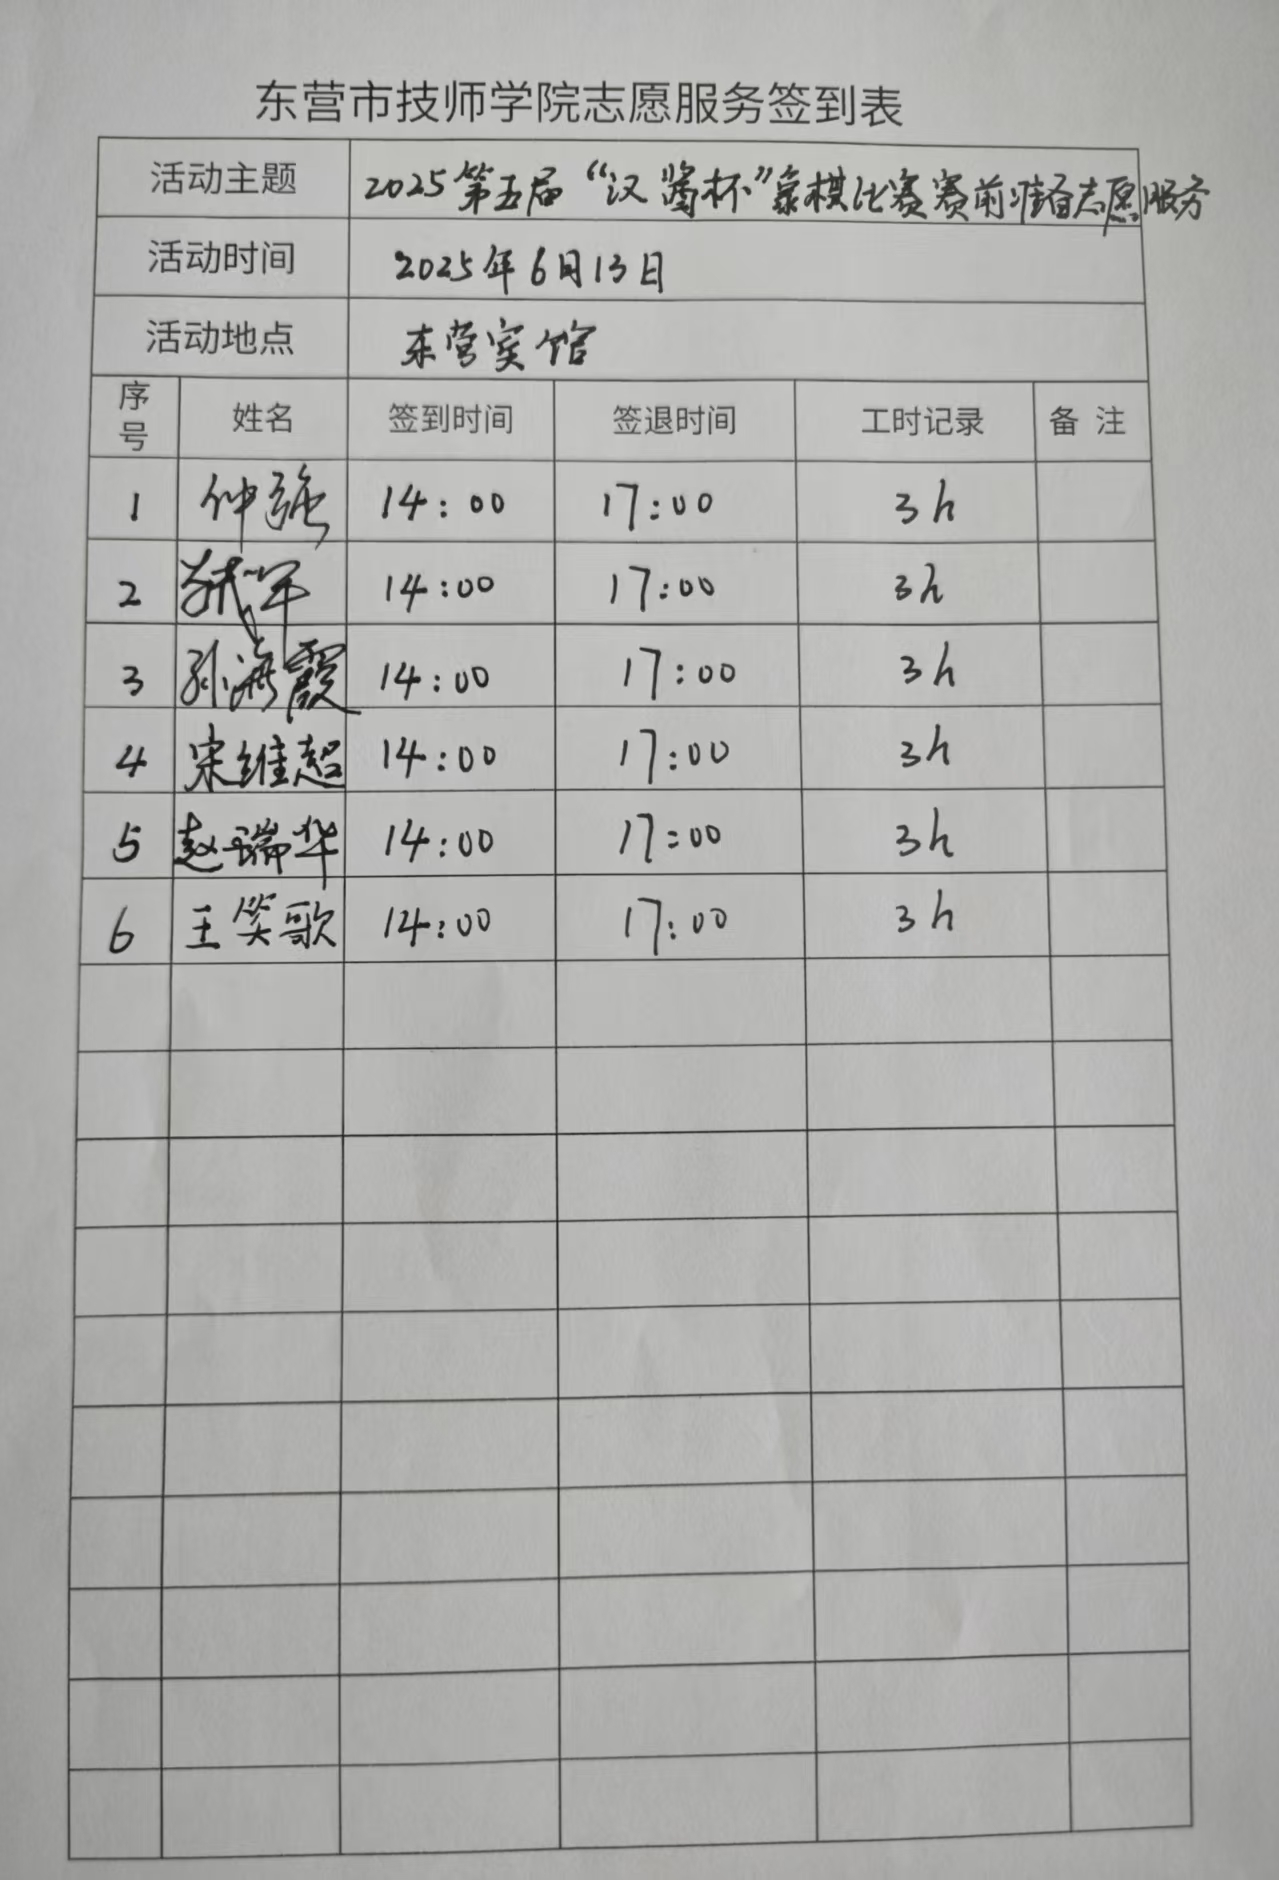 东营市技师学院志愿服务签到表
活动主题 2025第五届“汉酱杯”象棋比赛赛前准备志愿服务
活动时间 2025年6月13日
活动地点 东营宾馆
序号 姓名 签到时间 签退时间 工时记录 备 注
1 仲强 14:00 17:00 3h
2 14:00 17:00 3h
3 孙海霞 14:00 17:00 3h
4 宋维超 14:00 17:00 3h
5 赵瑞华 14:00 17:00 3h
6 王笑歌 14:00 17:00 3h